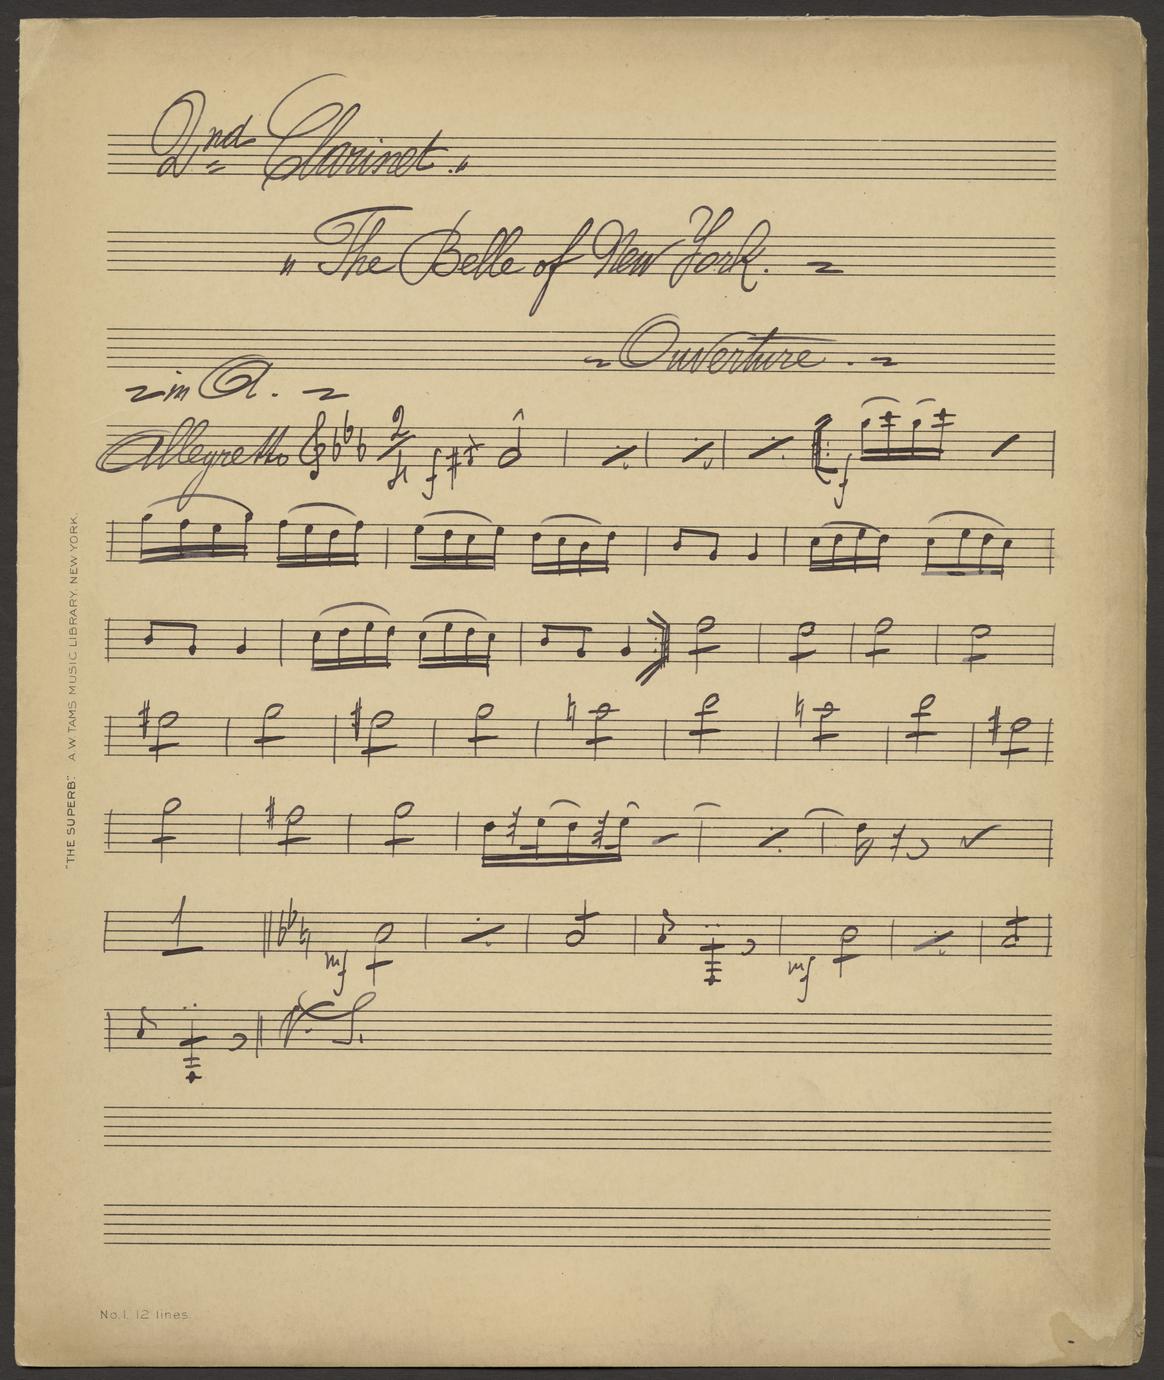 2nd Clarinet.
"The Belle of New York.
Ouverture.
in A.
Allegretto 2/4 f
f
1
mf
mf
V.S.
"THE SUPERB." A.W. TAMS MUSIC LIBRARY. NEW YORK.
No. 1. 12 lines.